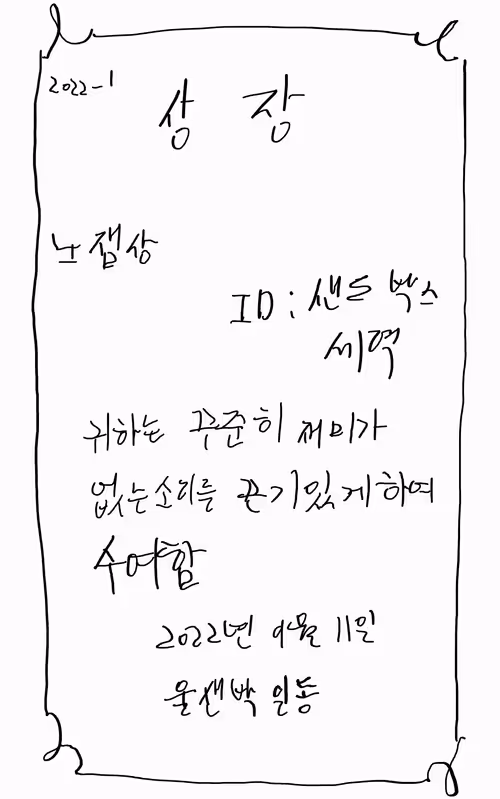 2022-1
상 장
노잼상
ID : 샌드박스
세력
귀하는 꾸준히 재미가
없는소리를 끈기있게하여
수여함
2022년 9월 11일
울샌박 일동